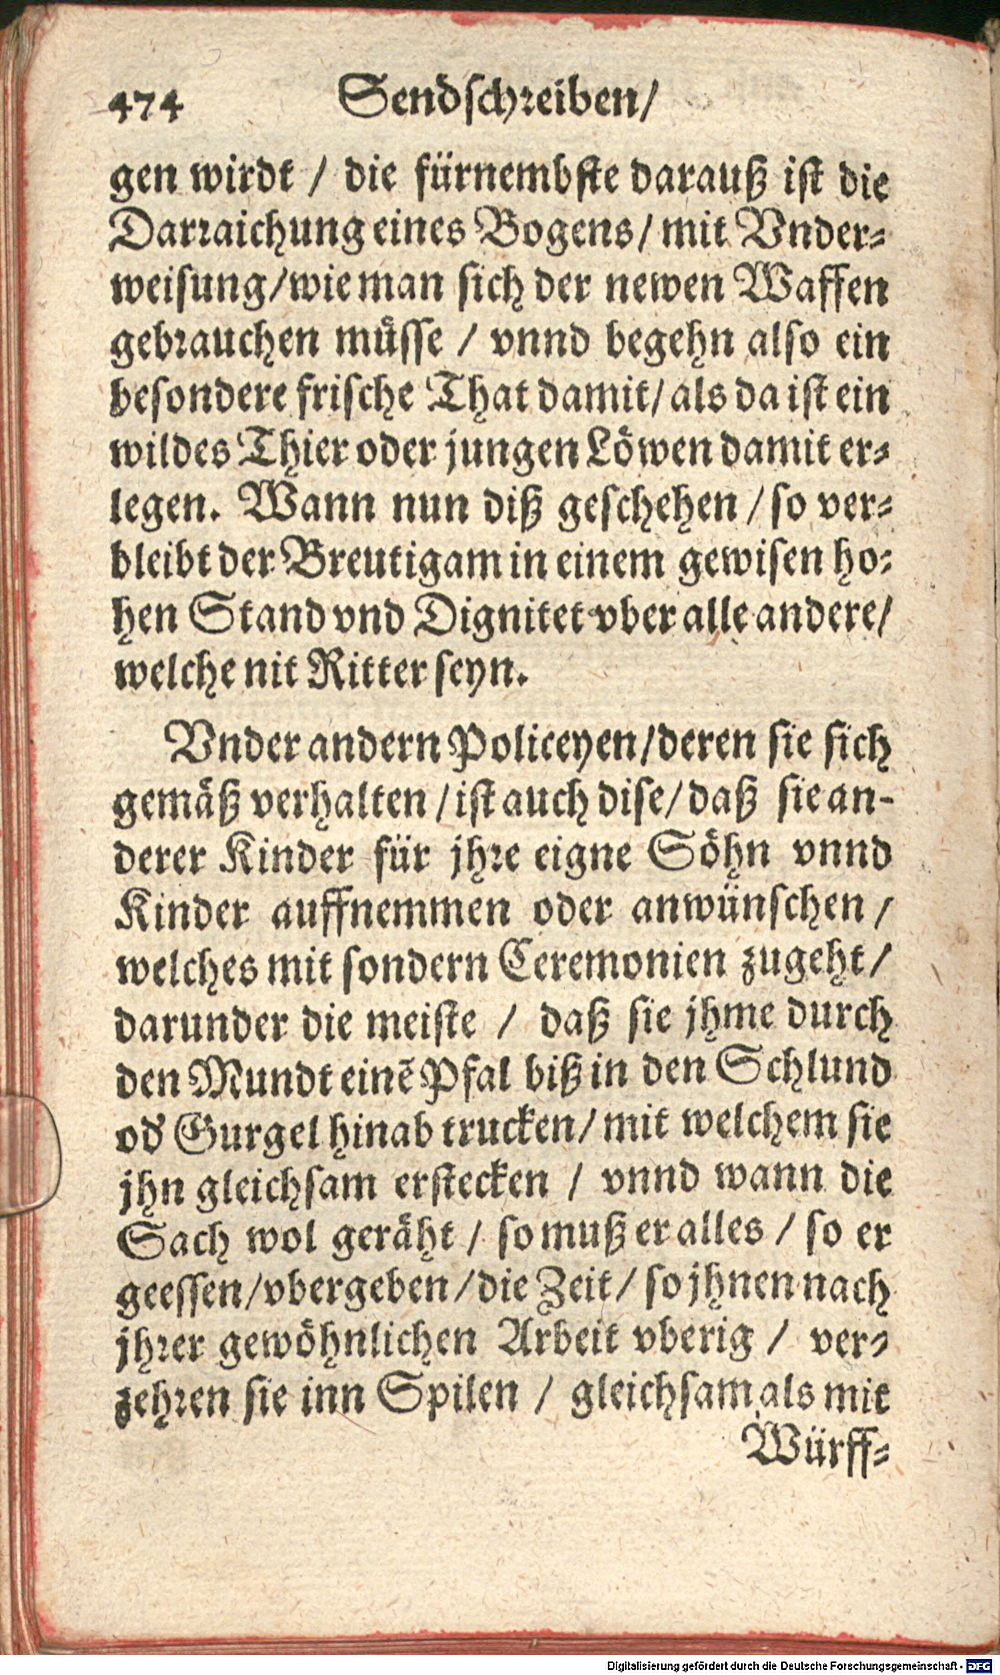 474 Sendschreiben/
gen wirdt / die fürnembste darauß ist die
Darraichung eines Bogens/ mit Vnder-
weisung/wie man sich der newen Waffen
gebrauchen müsse / vnnd begehn also ein
besondere frische That damit/ als da ist ein
wildes Thier oder jungen Löwen damit er-
legen. Wann nun diß geschehen / so ver-
bleibt der Breutigam in einem gewisen ho-
hen Stand vnd Dignitet vber alle andere/
welche nit Ritter seyn.
Vnder andern Policeyen/deren sie sich
gemäß verhalten / ist auch dise/ daß sie an-
derer Kinder für jhre eigne Söhn vnnd
Kinder auffnemmen oder anwünschen /
welches mit sondern Ceremonien zugeht/
darunder die meiste / daß sie jhme durch
den Mundt einẽ Pfal biß in den Schlund
od' Gurgel hinab trucken/ mit welchem sie
jhn gleichsam erstecken / vnnd wann die
Sach wol geräht / so muß er alles / so er
geessen/vbergeben/die Zeit/ so jhnen nach
jhrer gewöhnlichen Arbeit vberig / ver-
zehren sie inn Spilen / gleichsam als mit
Würff-
Digitalisierung gefördert durch die Deutsche Forschungsgemeinschaft - DFG